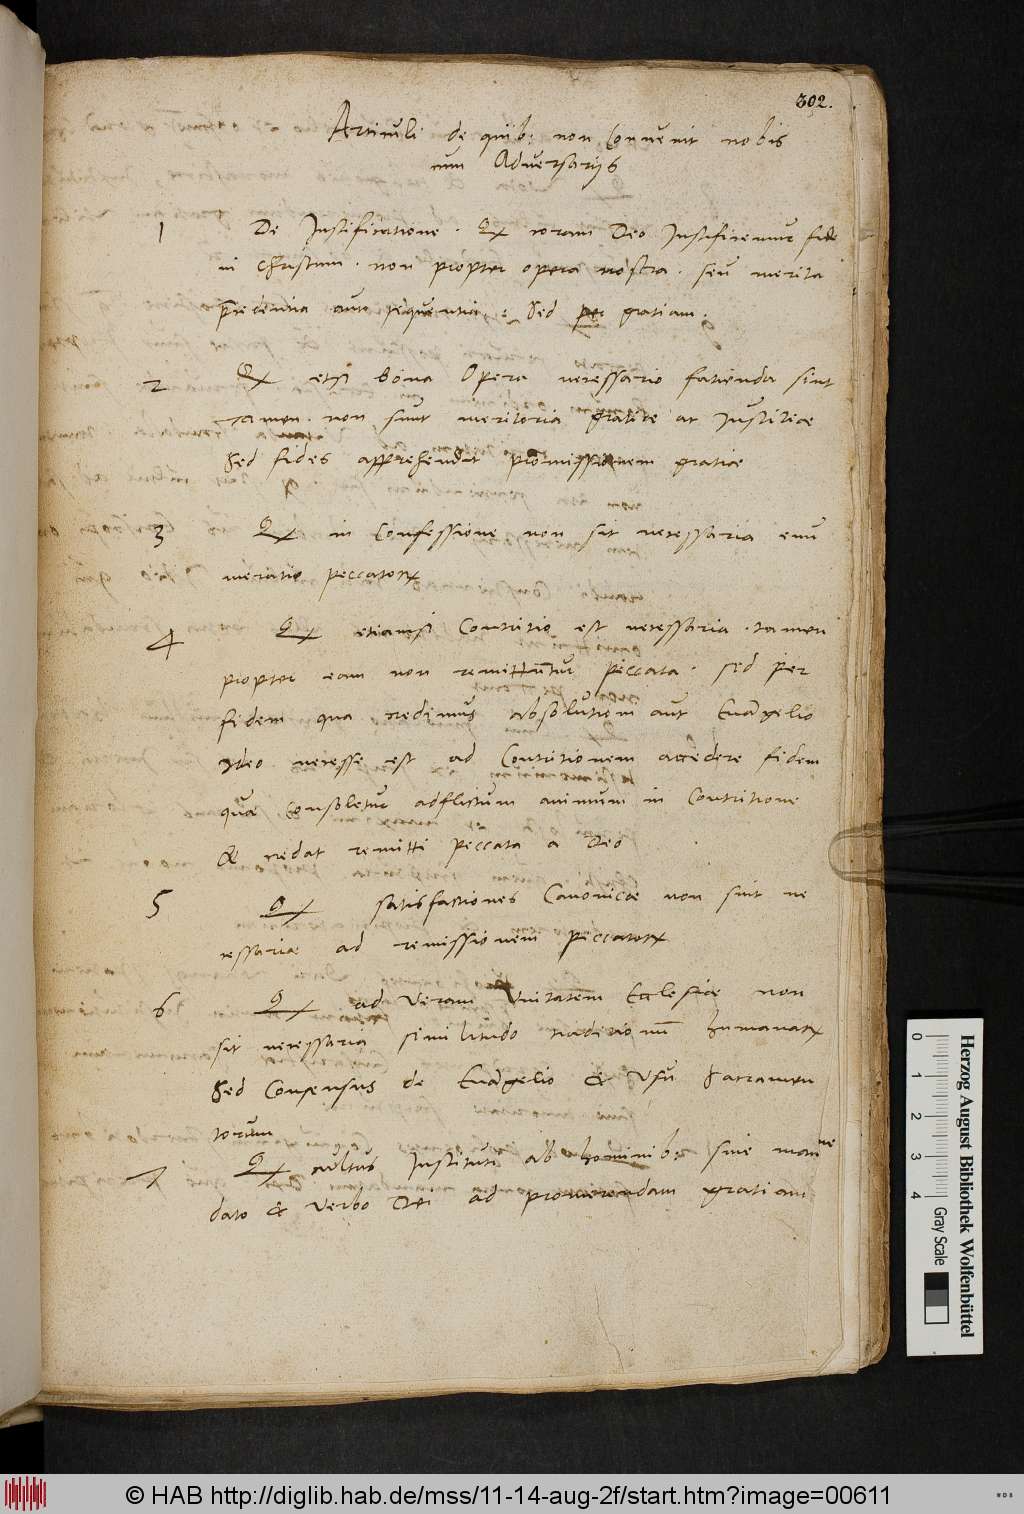 302.
Articuli de quib: non Convenit nobis
cum Adversarijs
1 De Justificatione. Q coram Deo Justificemur fide
in Christum. non propter opera nostra. seu merita
precedentia aut sequentia: Sed per gratiam.
2 Q etsi bona Opera necessario facienda sint
tamen non sunt meritoria gratiae ac Justitiae
Sed fides apprehendit promissionem gratiae
3 Q in Confessione non sit necessaria enu
meratio peccatorꝝ
4 Q etiamsi Contritio est necessaria. tamen
propter eam non remittuntur peccata. sed per
fidem qua credimus absolutioni aut Evangelio
Ideo necesse est ad Contritionem accedere fidem
quae Consoletur adflictum animum in Contritione
& credat remitti peccata a Deo
5 Q satisfactiones Canonicae non sint ne
cessariae ad remissionem peccatorꝝ
6 Q ad Veram Unitatem Ecclesiae non
sit necessaria similitudo traditionum humanarꝝ
Sed Consensus de Evangelio & Usu Sacramen
torum
7 Q cultus Instituti ab hominib: sine man
dato & Verbo Dei ad promerendam gratiam
0 1 2 3 4
Gray Scale
Herzog August Bibliothek Wolfenbüttel
© HAB http://diglib.hab.de/mss/11-14-aug-2f/start.htm?image=00611